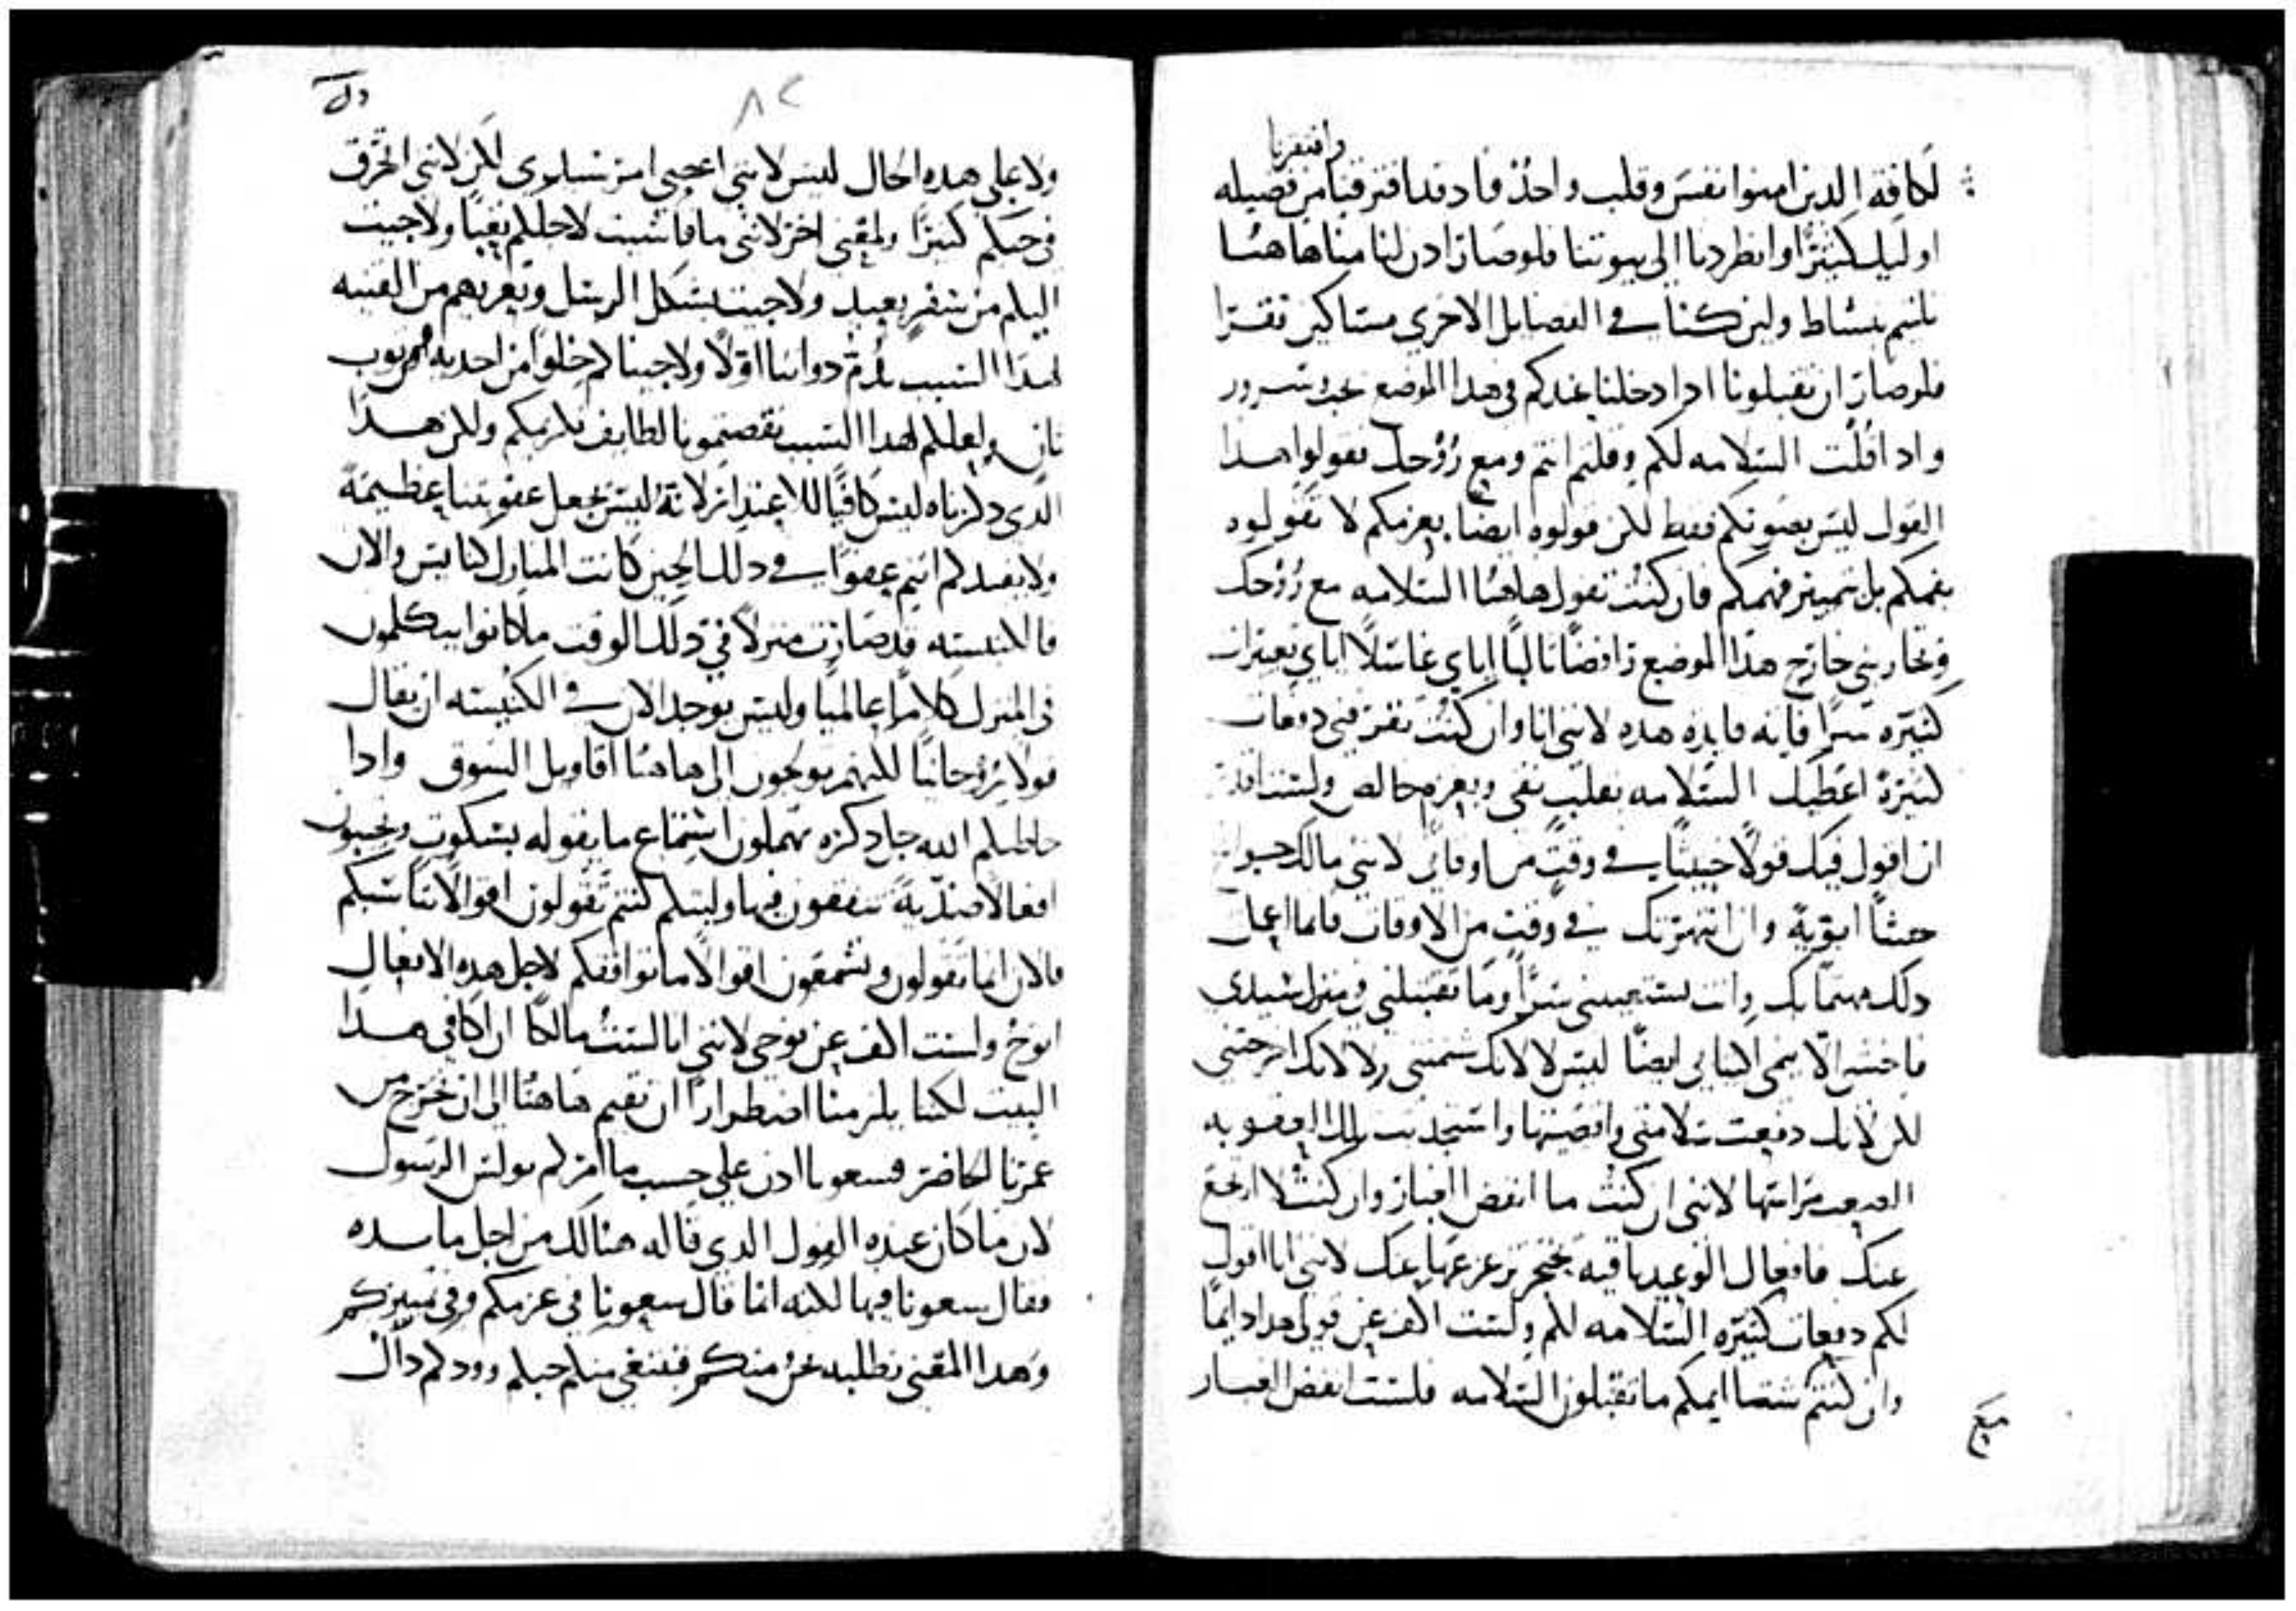 وافتقرنا
لكافة الدين امنوا نفس وقلب واحد فاد قد افترقنا من فضيله
او ليك كثيرا وانطردنا الى بيوتنا فلو صار ادن لنا مناهاهنا
بشاط ولين كنا في الفضايل الاخرى مساكين فقرا
فلو صار ان تقبلونا ادا دخلنا عندكم في هدا الموضع بحب وسرور
واد اقلت السلامه لكم وقلتم انتم ومع روحك تقولوا هدا
القول ليس بصوتكم فقط لكن قولوه ايضا بعزمكم لا تقولوه
بفمكم بل بتمييز فهمكم فان كنت تقول هاهنا السلامه مع روحك
وتحاربني خارج هدا الموضع رافضا ثالبا اياي غاسلا اياي بعيرات
كثيره سرا فايه فايده هده لانني انا وان كنت تقرفني دفعات
كثيرة اعطيك السلامه بقلب نقي وبعزم خالص ولست اقدر
ان اقول فيك قولا خبيثا في وقت من اوقاتي لانني مالك
حشا ابوية وان انتهرتك في وقت من الاوقات فانما اعمل
دلك مهتما بك وانت سرا وما تقبلني في منزل سيدي
فاخشى الا ينمى اكتيابي ايضا ليس لا لانك شتمتني ولا لانك اخرجتني
لكن لانك دفعت سلامتي واقصيتها واستجدبت لك العقوبه
الصعب مراستها لانني ان كنت ما انفض الغبار وان كنت لا ارجع
عنك فافعال الوعيد باقيه بحجر غير مزعزعتها عنك لانني انا اقول
لكم دفعات كثيره السلامه لكم ولست اكف عن قولي هدا دايما
وان كنتم شتما ايمكم ما تقبلون السلامه فلست انفض الغبار
ولا على هده الحال ليس لانني اعصي امر سيدي لكن لانني احترق
في حبكم كثيرا ولمعنى اخر لانني ما قاسيت لاجلكم تعبا ولا جيت
اليكم من سفر بعيد ولا جيت بشكل الرسل وتعريهم من القنيه
لهدا السبب نذم دواتنا اولا ولا جيناكم خلوا من احديه ومن ثوب
ثان ولعلكم لهدا السبب نقصتمونا لطايف تكريمكم ولكن هدا
الدي دكرناه ليس كافيا للاعتدار لانه ليس يجعل عقوبتنا عظيمة
ولا يفيدكم انتم عفوا في دلك الحين كانت المنازل كنايس والان
فالكنيسه قد صارت منزلا في دلك الوقت ما كانوا يتكلمون
في المنزل كلاما عالميا وليس يوجد الان في الكنيسه ان يقال
قولا روحانيا لكنهم يولجون الى هاهنا اقاويل السوق وادا
خاطبكم الله جل دكره تهملون استماع ما يقوله بسكوت وتجيبون
افعالا ضدية تتفقون فيها وليتكم كنتم تقولون اقوالا تناسبكم
فالان انما تقولون وتسمعون اقوالا ما توافقكم لاجل هده الافعال
انوح ولست اكف عن نوحي لانني انا لست مالكا ان اكافي هدا
البيت لكننا يلزمنا اضطرارا ان نقيم هاهنا الى ان نخرج من
عمرنا الحاضر فسعونا ادن على حسب ما امركم بولس الرسول
لان ما كان عنده القول الدي قاله هنالك من اجل مايده
فقال سعونا فيها لكنه انما قال سعونا في عزمكم وفي تمييزكم
وهدا المعنى نطلبه نحن منكم فنبتغي منكم حبكم وودكم داك